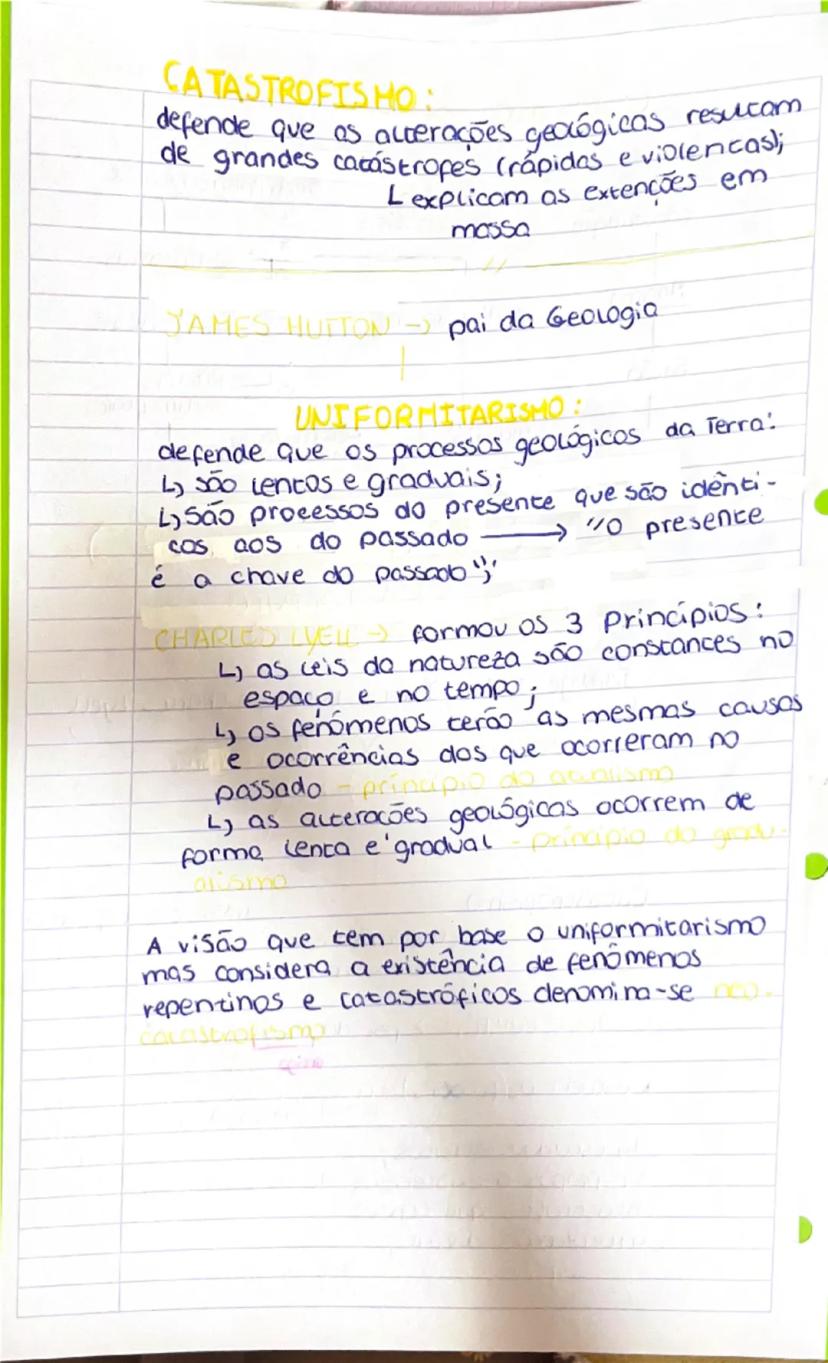 CATASTROFISMO:
defende que as alterações geológicas resultam
de grandes catástropes (rápidas e violentas);
L explicam as extenções em
massa
JAMES HUTTON → pai da Geologia
UNIFORMITARISMO:
defende que os processos geológicos da Terra:
↳ são lentos e graduais;
↳ são processos do presente que são idênti-
cos aos do passado → "o presente
é a chave do passado";
CHARLES LYELL → formou os 3 princípios:
↳ as leis da natureza são constantes no
espaço e no tempo;
↳ os fenómenos terão as mesmas causas
e ocorrências dos que ocorreram no
passado - princípio do atualismo
↳ as alterações geológicas ocorrem de
forma lenta e gradual - princípio do gradu-
alismo
A visão que tem por base o uniformitarismo
mas considera a existência de fenómenos
repentinos e catastróficos denomina-se neo-
catastrofismo